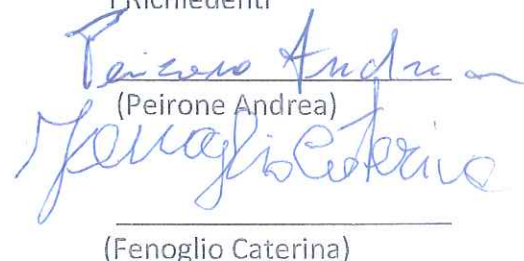 I Richiedenti
Peirone Andrea
(Peirone Andrea)
Fenoglio Caterina
(Fenoglio Caterina)